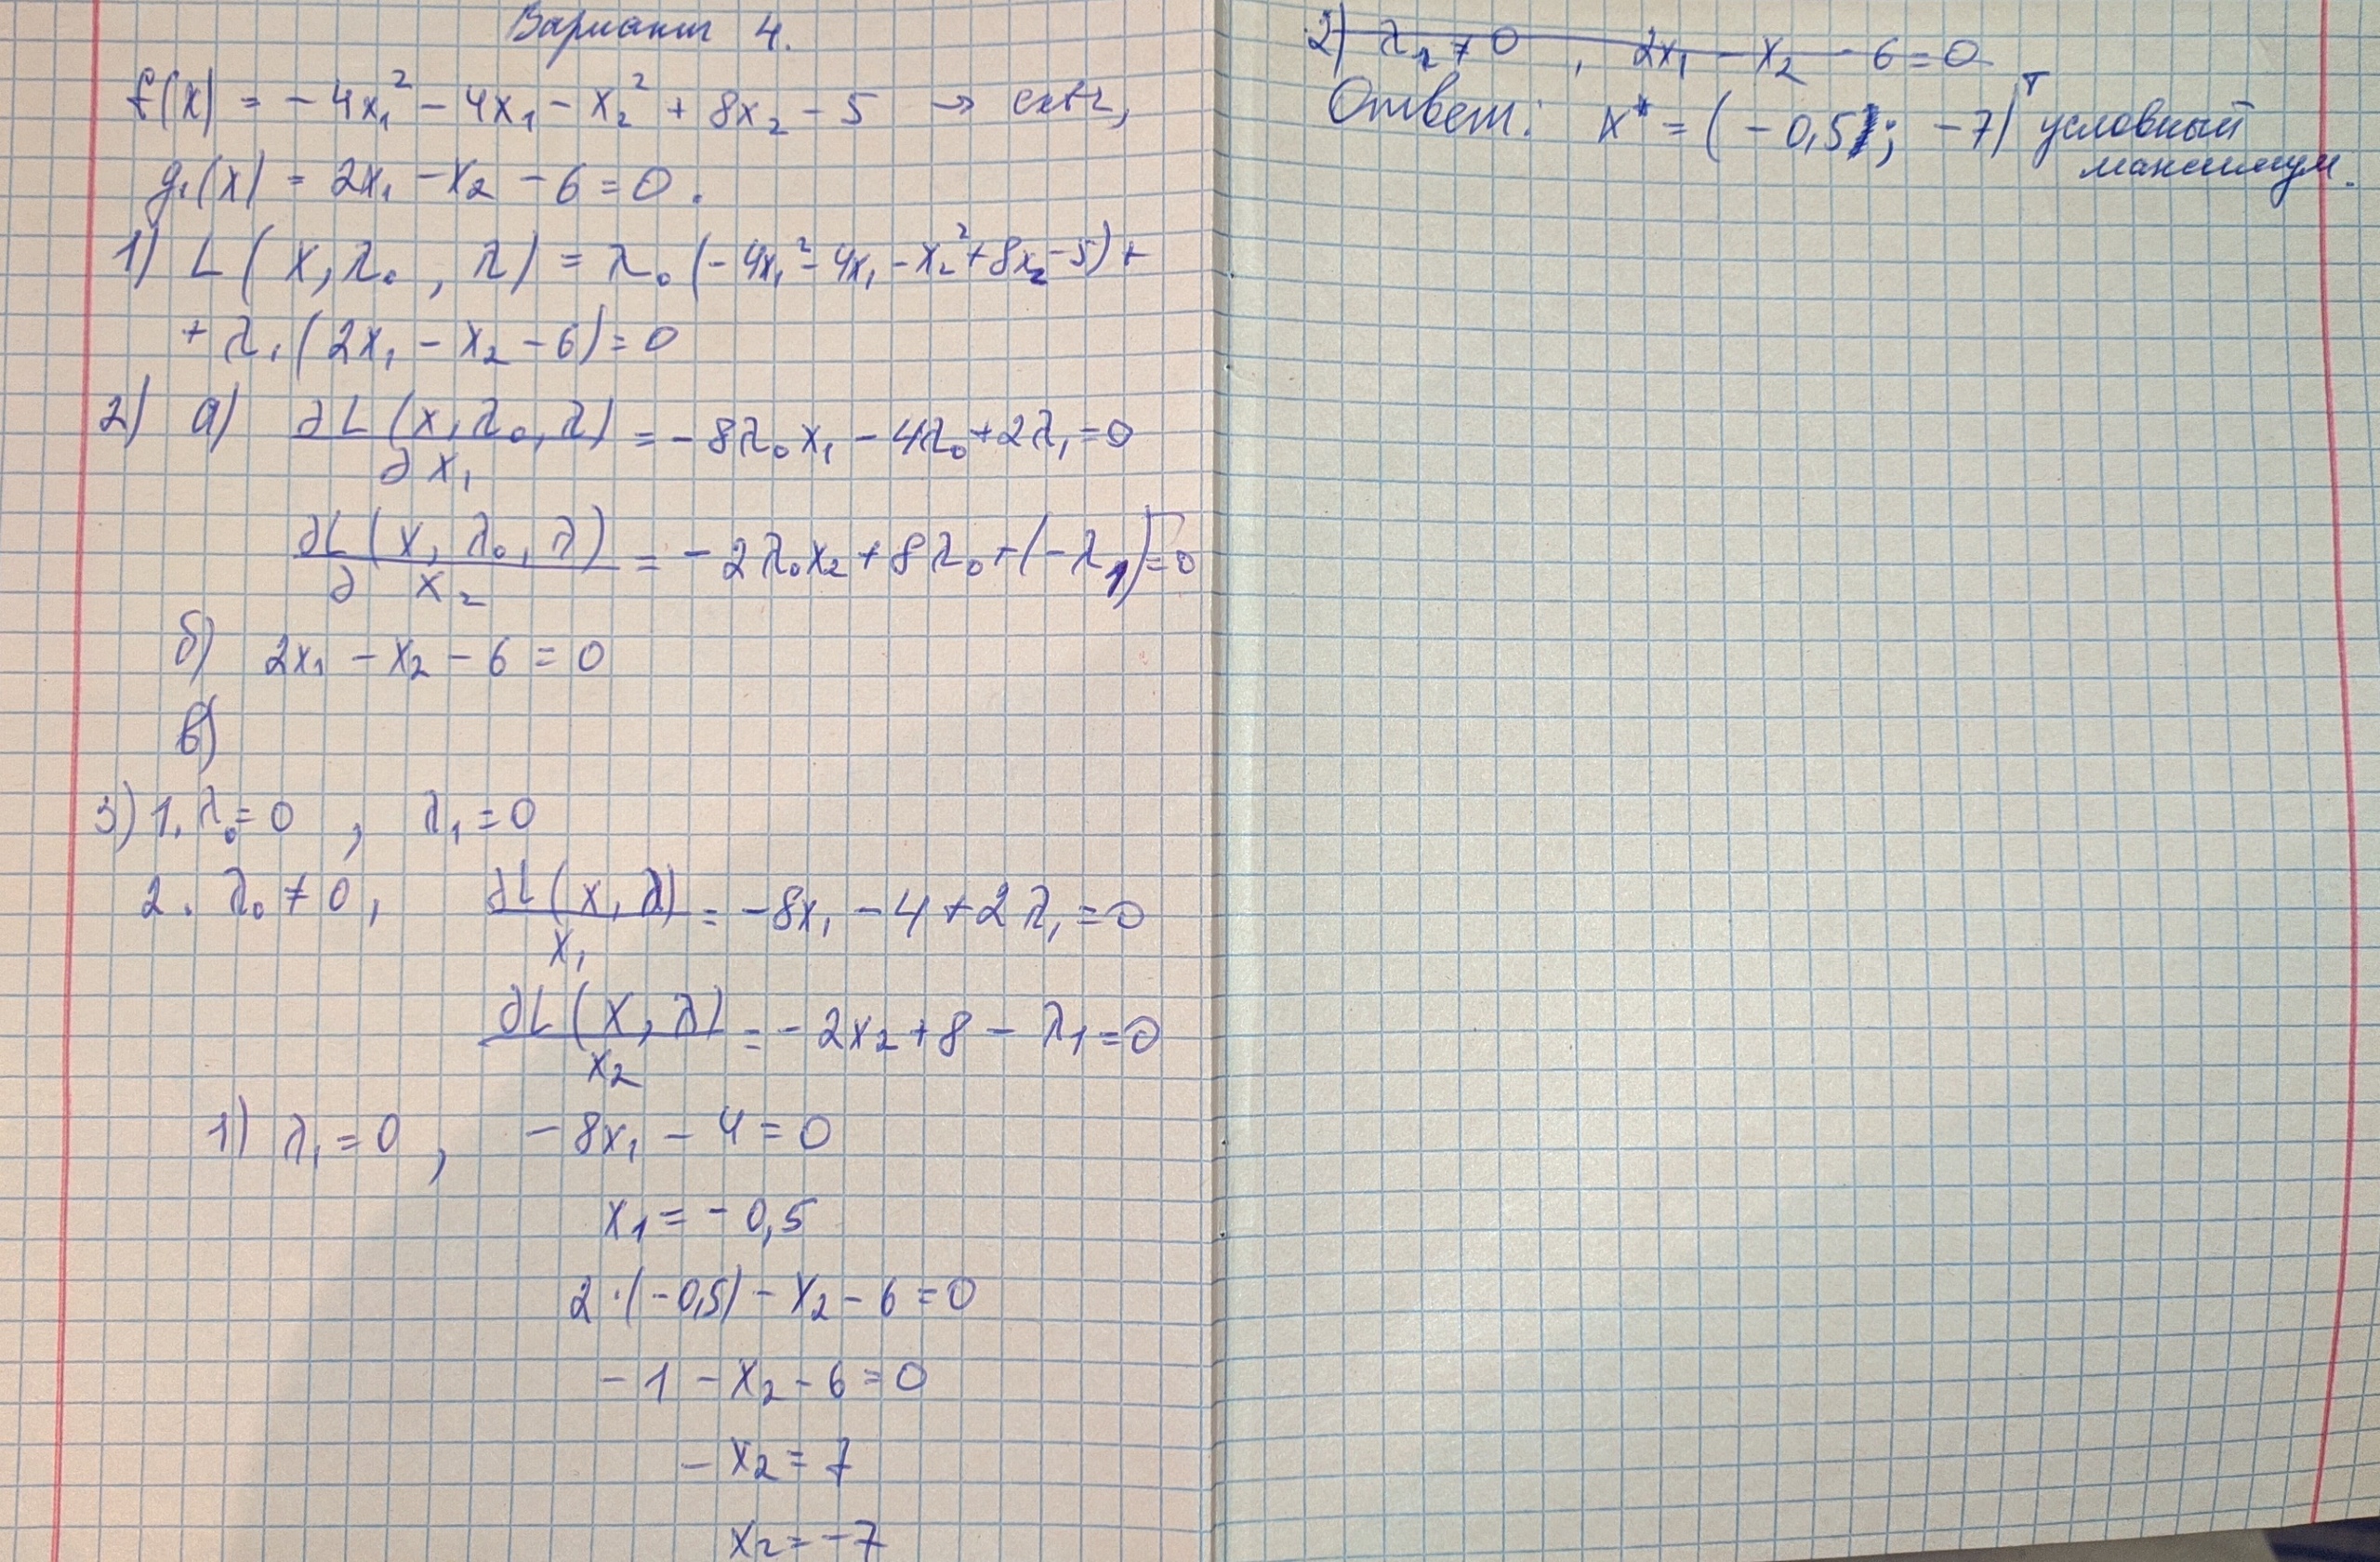 Вариант 4.
f(x) = -4x₁² - 4x₁ - x₂² + 8x₂ - 5 → extr,
g₁(x) = 2x₁ - x₂ - 6 = 0.
1) L(x, λ₀, λ) = λ₀(-4x₁² - 4x₁ - x₂² + 8x₂ - 5) +
+ λ₁(2x₁ - x₂ - 6) = 0
2) а) ∂L(x, λ₀, λ) / ∂x₁ = -8λ₀x₁ - 4λ₀ + 2λ₁ = 0
∂L(x, λ₀, λ) / ∂x₂ = -2λ₀x₂ + 8λ₀ + (-λ₁) = 0
б) 2x₁ - x₂ - 6 = 0
в)
3) 1. λ₀ = 0, λ₁ = 0
2. λ₀ ≠ 0, ∂L(x, λ) / x₁ = -8x₁ - 4 + 2λ₁ = 0
∂L(x, λ) / x₂ = -2x₂ + 8 - λ₁ = 0
1) λ₁ = 0, -8x₁ - 4 = 0
x₁ = -0,5
2·(-0,5) - x₂ - 6 = 0
-1 - x₂ - 6 = 0
-x₂ = 7
x₂ = -7
2) λ₁ ≠ 0, 2x₁ - x₂ - 6 = 0
Ответ: x* = (-0,5; -7)ᵀ условный
максимум.